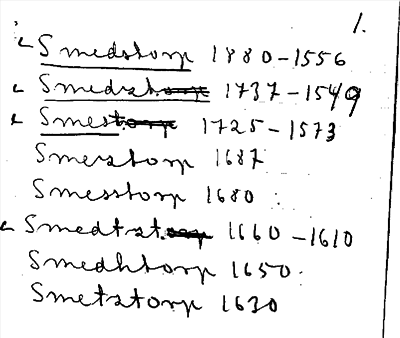 1.
Smedstorp 1880-1556
Smedst. 1737-1549
Smest 1725-1573
Smerstorp 1687
Smesstorp 1680
Smedtst. 1660-1610
Smedhtorp 1650
Smetstorp 1630